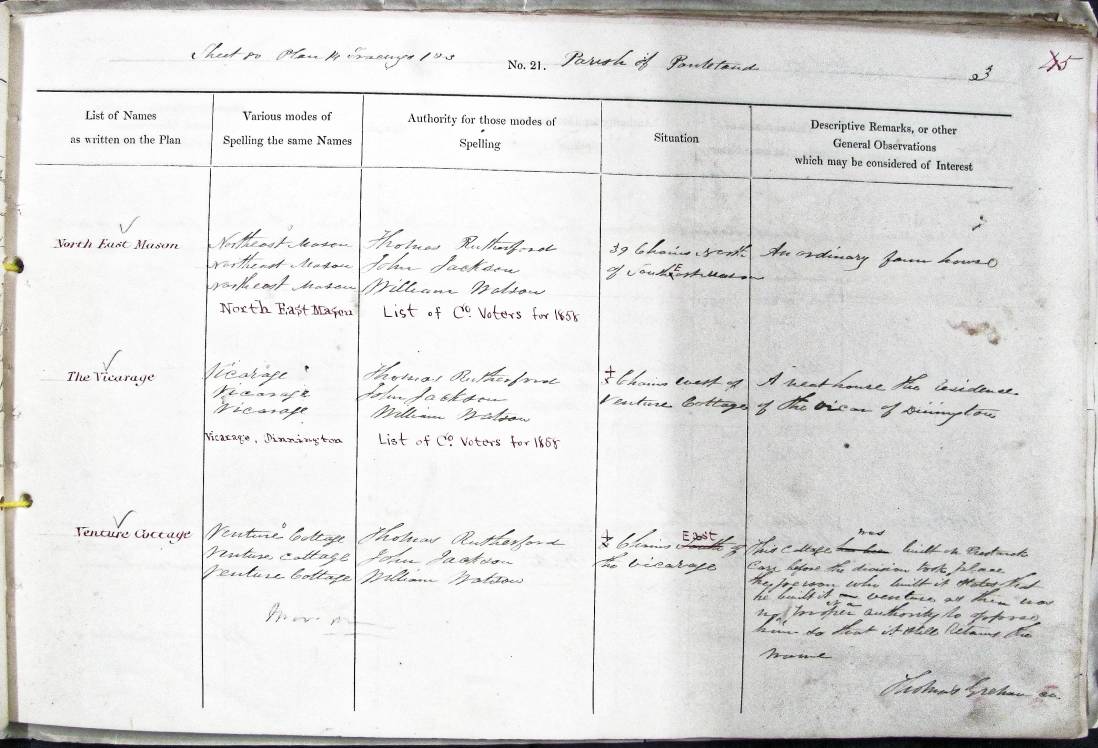 Sheet 80 Plan 14 Tracings 1 & 3
No. 21.
Parish of Ponteland
23
45
List of Names
as written on the Plan
Various modes of
Spelling the same Names
Authority for those modes of
Spelling
Situation
Descriptive Remarks, or other
General Observations
which may be considered of Interest
North East Mason
Northeast Mason
Northeast Mason
Northeast Mason
North East Mason
Thomas Rutherford
John Jackson
William Watson
List of Co. Voters for 1858
39 Chains North
of South East Mason
An ordinary farm house
The Vicarage
Vicarage
Vicarage
Vicarage
Vicarage, Dinnington
Thomas Rutherford
John Jackson
William Watson
List of Co. Voters for 1858
Chains west of
Venture Cottage
A neat house the residence
of the vicar of Dinington
Venture Cottage
Venture Cottage
Venture cottage
Venture Cottage
Thomas Rutherford
John Jackson
William Watson
Chains East of
the vicarage
This Cottage was built on
Carr before the division took place
the person who built it states that
he built it a venture as there was
no proper authority to oppose
him so that it still retains the
name
Thomas Graham